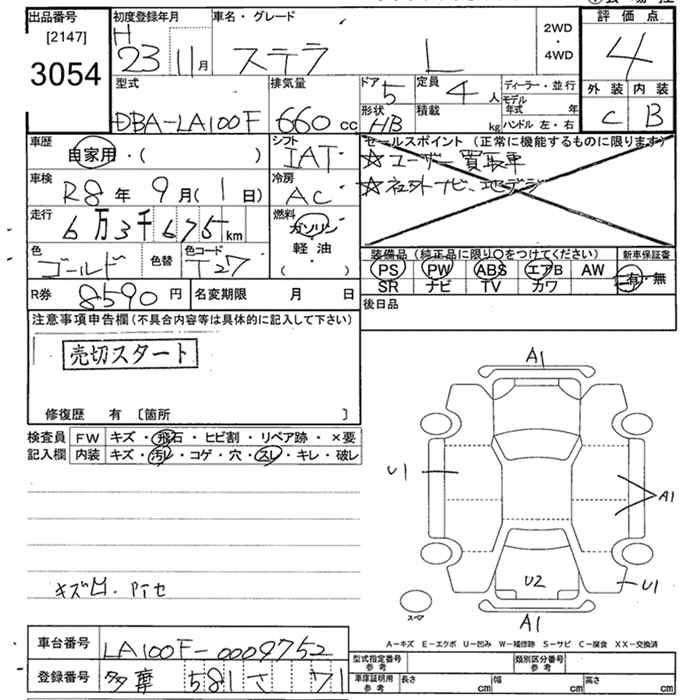 出品番号
[2147]
3054
初度登録年月
H
23 11月
車名・グレード
ステラ L
2WD
・
4WD
評価点
4
外装 内装
C B
型式
DBA-LA100F
排気量
660 cc
ドア
5
定員
4 人
形状
HB
積載
kg
ディーラー・並行
モデル年式 年
ハンドル 左・右
車歴
自家用・( )
シフト
IAT
セールスポイント (正常に機能するものに限ります)
☆ユーザー買取車
☆社外ナビ、地デジ
車検
R8年 9月(1日)
冷房
AC
走行
6万3千675km
燃料
ガソリン
軽・油
( )
色
ゴールド
色替
色コード
T27
装備品 (純正品に限り○をつけてください)
新車保証書
PS PW ABS エアB AW
SR ナビ TV カワ
有・無
R券 8590円
名変期限 月 日
後日品
注意事項申告欄(不具合内容等は具体的に記入して下さい)
売切スタート
修復歴 有 〔箇所 〕
検査員
記入欄
FW キズ・飛石・ヒビ割・リペア跡・×要
内装 キズ・汚レ・コゲ・穴・スレ・キレ・破レ
A1
U1
A1
U2
U1
スペア
A1
キズ凹.
A-キズ E-エクボ U-凹み W-補修跡 S-サビ C-腐食 XX-交換済
車台番号
LA100F-0009752
登録番号
多摩 581 さ 71
型式指定番号
参考
類別区分番号
参考
車庫証明用
参考
長さ cm 幅 cm 高さ cm